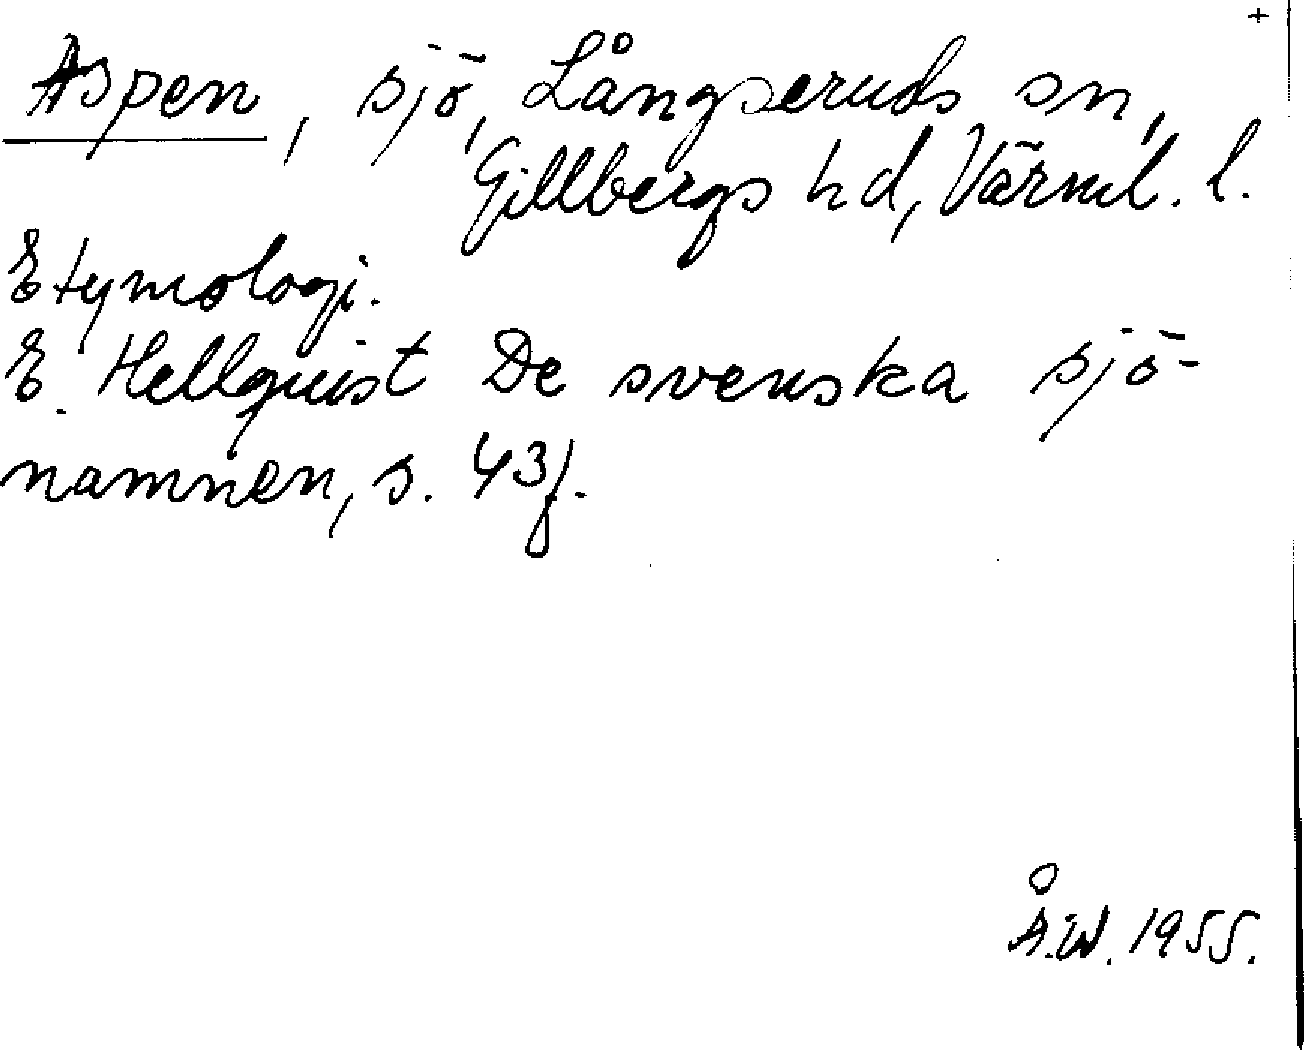 +
Aspen, sjö, Långseruds sn,
Gillbergs hd, Värml. l.
Etymologi.
E. Hellquist De svenska sjö-
namnen, s. 43f.
Å.W. 1955.